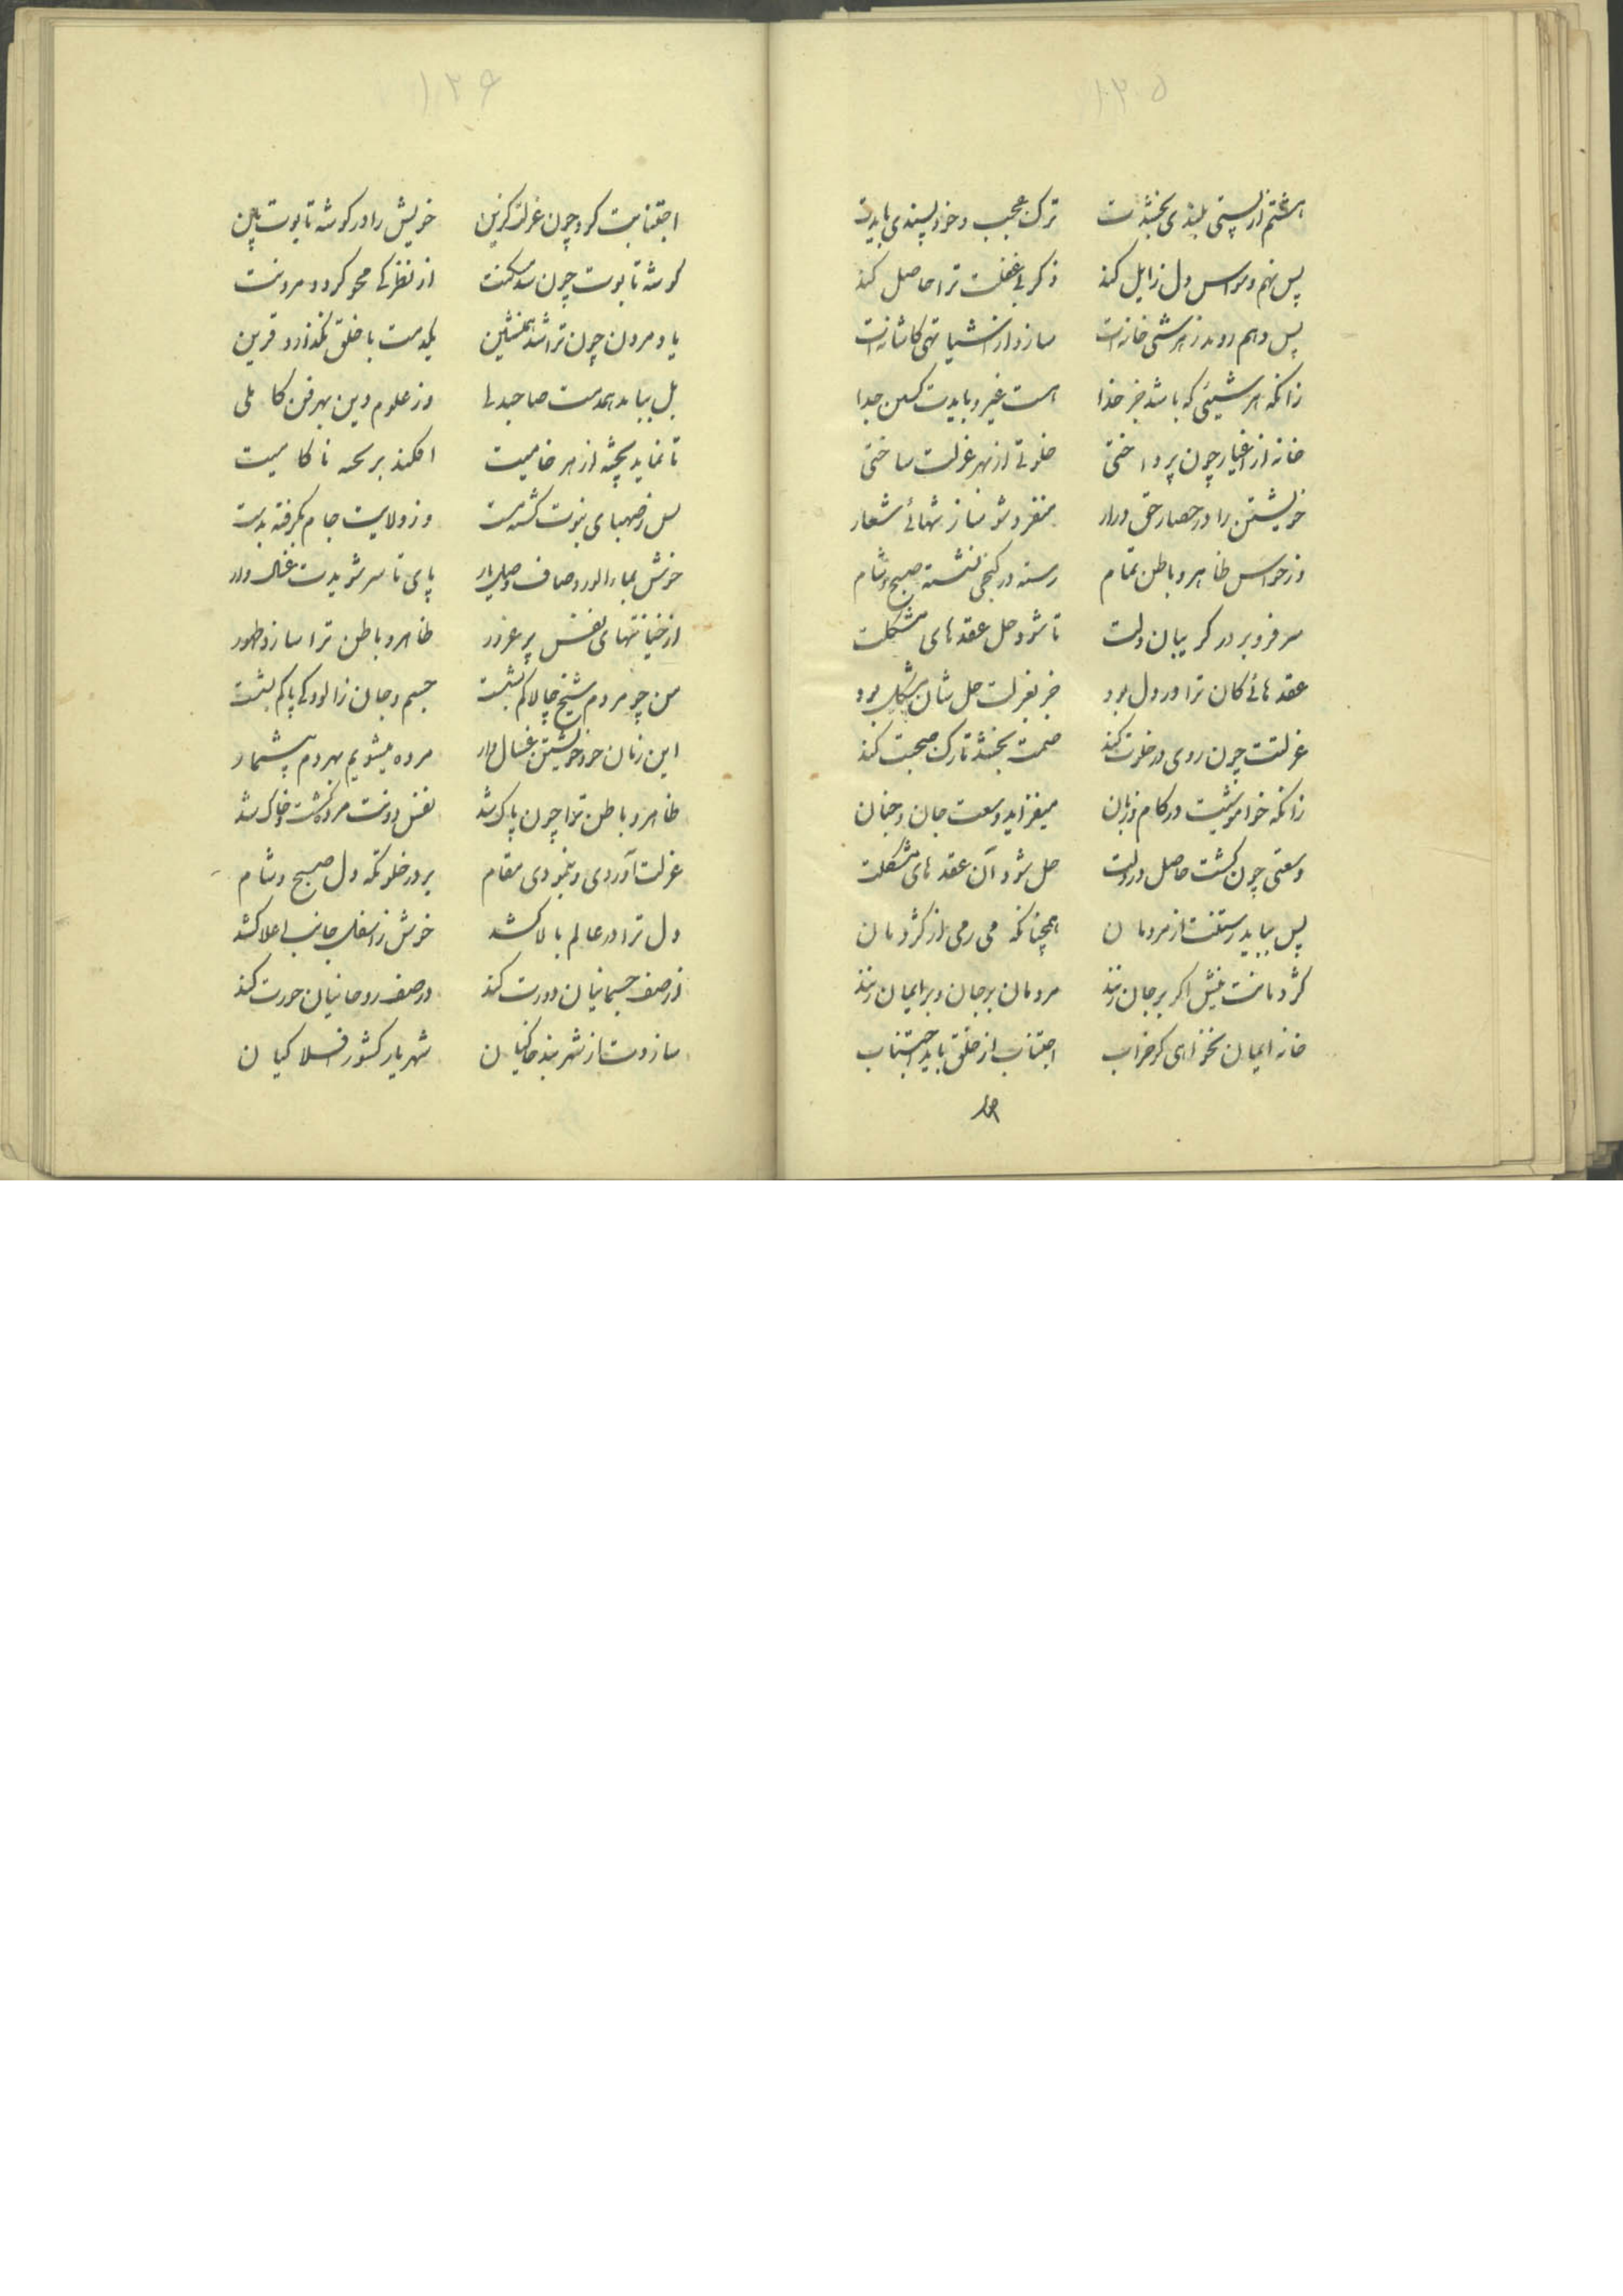 ۱۲۵
هشتم از پستی بلندی بخشدت ترک عجب و خود پسندی بایدت
پس نهم وسواس دل زایل کند ذکر بی غفلت ترا حاصل کند
پس دهم روبد ز هر شیی خانه‌ات سازد از اشیا تهی کاشانه‌ات
زانکه هر شیئی که باشد جز خدا هست غیر و بایدت کردن جدا
خانه از اغیار چون پرداختی خلوتی از بهر عزلت ساختی
خویشتن را در حصار حق درار منفرد شو ساز تنهائی شعار
وز حواس ظاهر و باطن تمام رسته در کنجی نشسته صبح و شام
سر فرو بر در کریبان دلت تا شود حل عقدهای مشکلت
عقدهائی کان ترا در دل بود جز بعزلت حل شان مشکل بود
عزلتت چون روی در خلوت کند صمت بخشد تارک صحبت کند
زانکه خواموشیت در کام و زبان میفزاید وسعت جان و جنان
وسعتی چون کشت حاصل در دلت حل شود آن عقدهای مشکلت
پس بباید رستنت از مردمان همچنانکه می رمی از کژدمان
کژدمانت نیش اکر بر جان زنند مردمان بر جان و بر ایمان زنند
خانه ایمان نخواهی کر خراب اجتناب از خلق باید اجتناب
۱۲۶
اجتنابت کرد چون عزلت کزین خویش را در کوشه تابوت بین
کوشه تابوت چون شد مسکنت از نظرکی محو کردد مردنت
یاد مردن چون ترا شد همنشین یکدمت با خلق نکذارد قرین
بل بباید همدمت صاحبدلی وز علوم دین بهر فن کاملی
تا نماید پخته از هر خامیت افکند بر ناکامیت
ز صهبای نبوت کشته مست وز ولایت جام بکرفته بدست
خوش بماء الورد صاف وصل یار پای تا سر شویدت غسال وار
از خیانتهای نفس پر غرور ظاهر و باطن ترا سازد طهور
من چو مردم شیخ چالاکم بشست جسم و جان ز الودکی پاکم بشست
این زمان خود خویشتن غسال وار مرده میشویم بهر دم بیشمار
ظاهر و باطن ترا چون پاک شد نفس دونت مرده کشت و خاک شد
عزلت آوردی و بنمودی مقام بر در خلوتکه دل صبح و شام
دل ترا در عالم بالا کشد خوش ز اسفل جانب اعلا کشد
از صف جسمانیان دورت کند در صف روحانیان حورت کند
سازدت از شهر بند خاکیان شهریار کشور افلاکیان